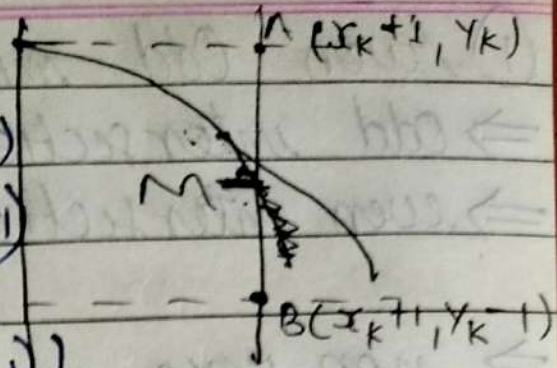 A (x_k+1, y_k)
)
M
1)
B(x_k+1, y_k-1)
))